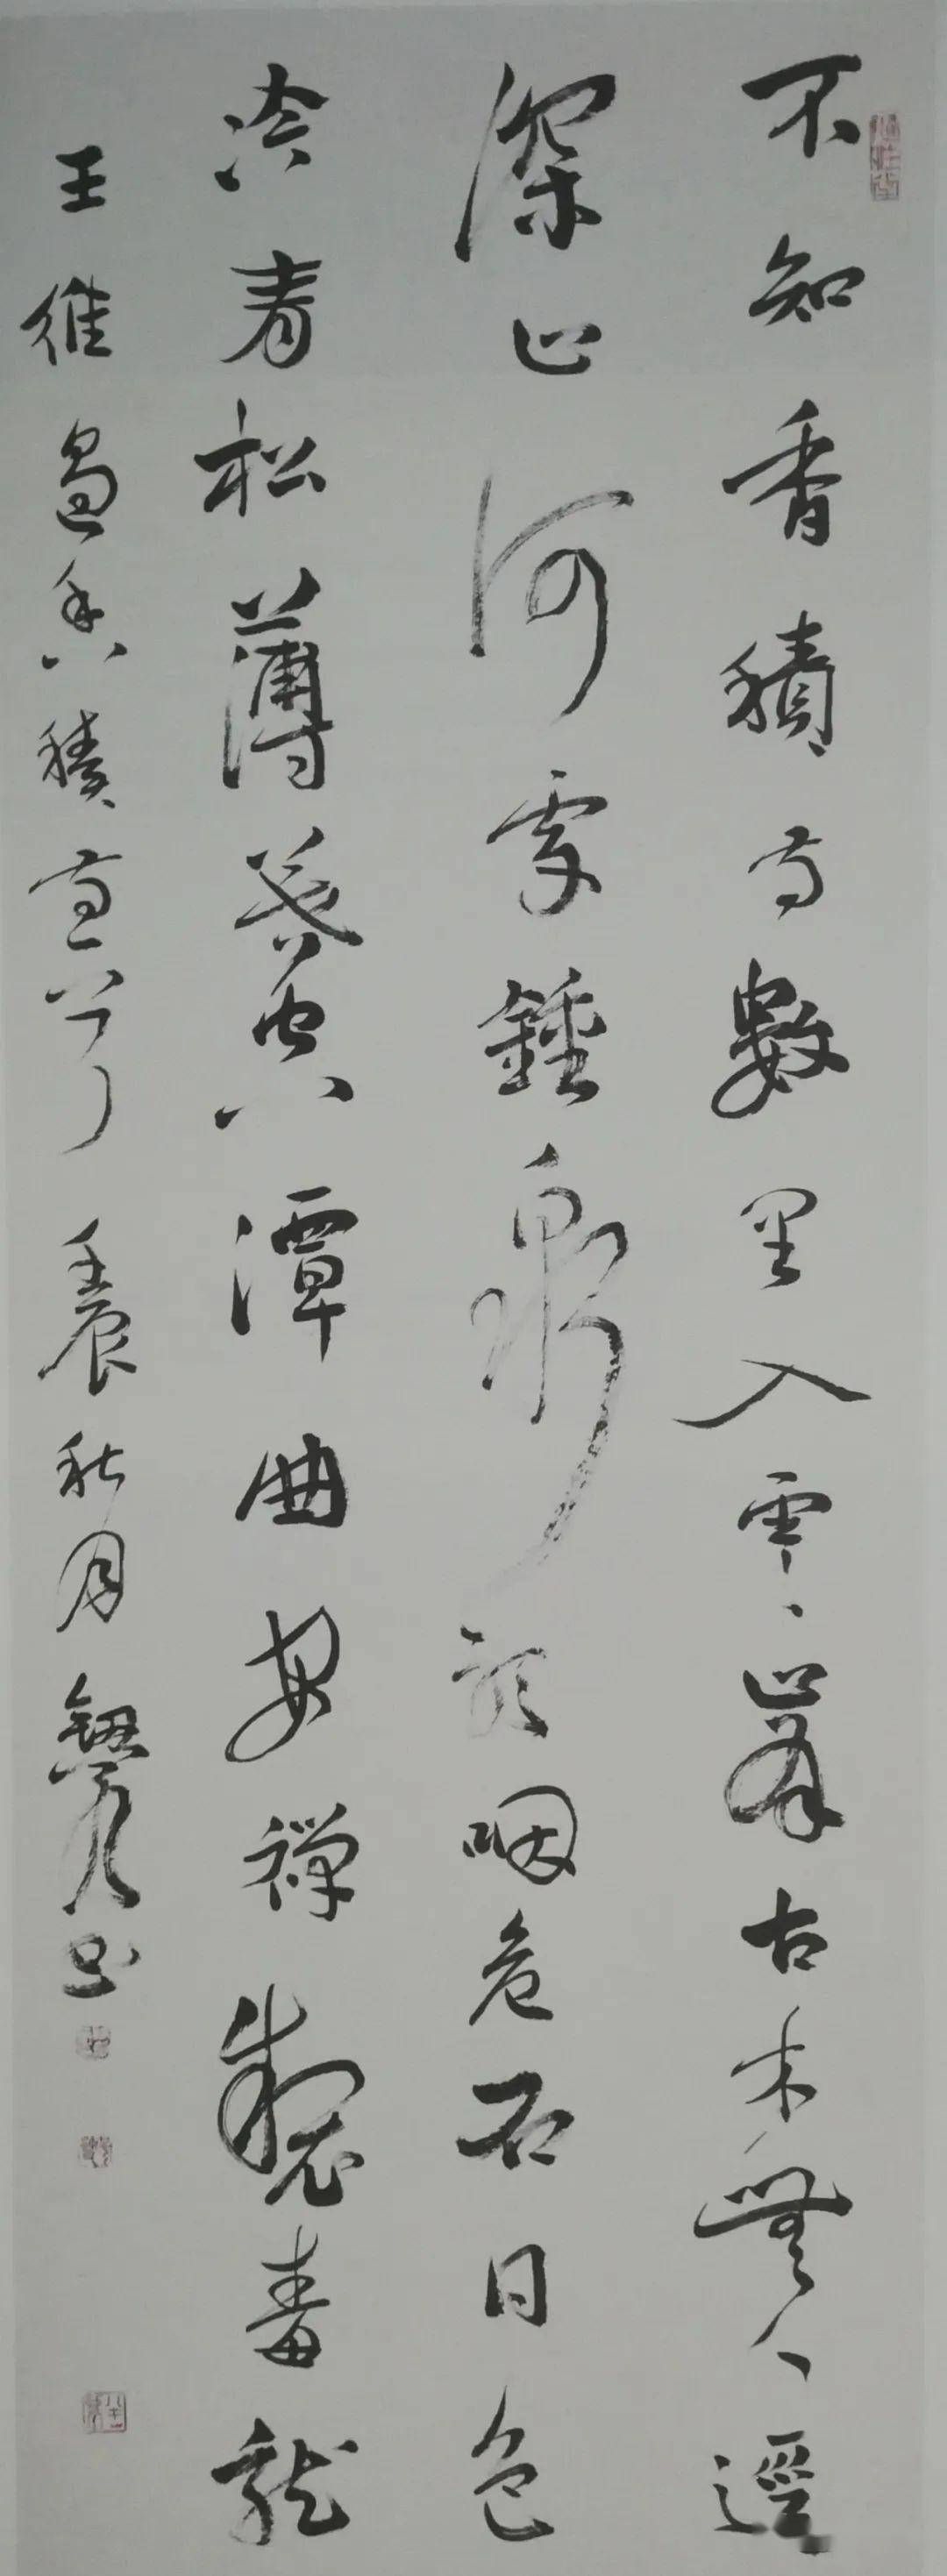 不知香積寺數里入雲峯古木無人逕
深山何處鍾泉聲咽危石日色
冷青松薄暮空潭曲安禪制毒龍
王維過香積寺 壬辰秋月 書